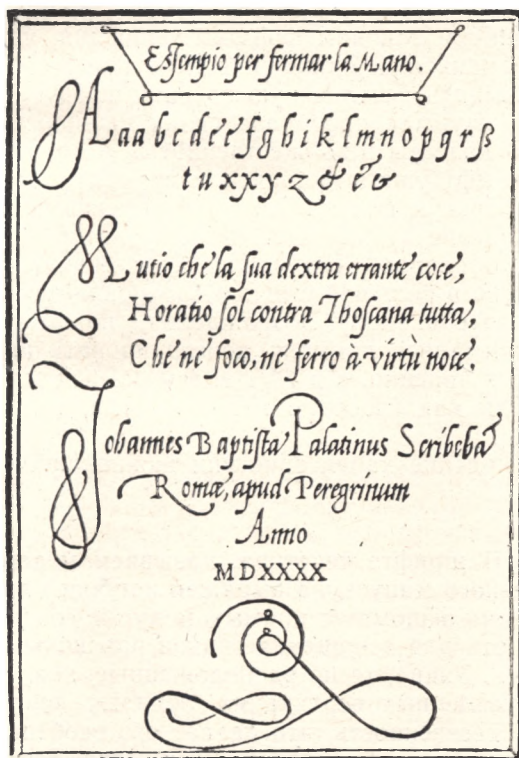 Essempio per fermar la Mano.
A a a b c d e e f g h i k l m n o p q r ß
t u x x y z & & &
Mutio che la sua dextra errante coce,
Horatio sol contra Thoscana tutta,
Che nè foco, nè ferro à virtù noce.
Johannes Baptista Palatinus Scribeba&
Romæ, apud Peregrinum
Anno
MDXXXX